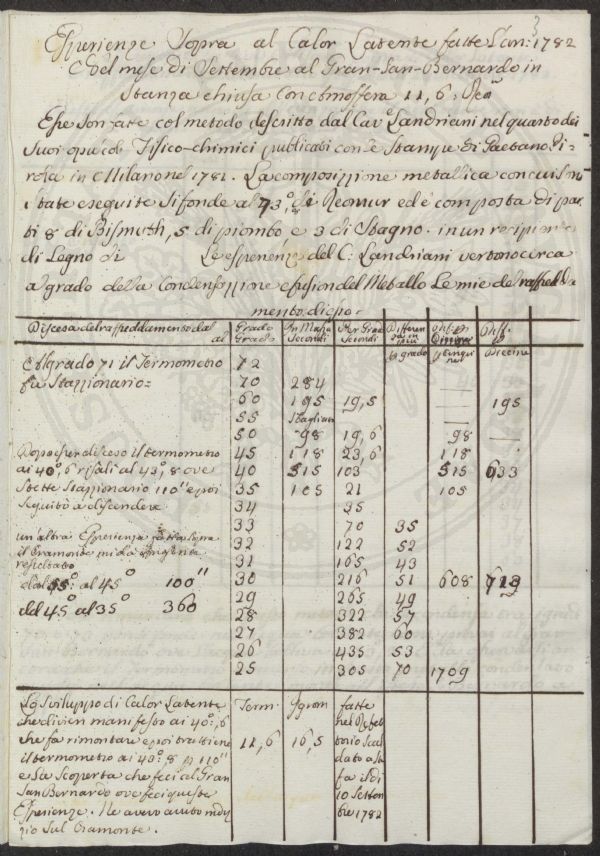 3
Esperienze Sopra al Calor Latente fatte l'an: 1782
e del mese di Settembre al Gran-San-Bernardo in
Stanza chiusa con atmosfera 11,6, Rea
Esse son fatte col metodo descritto dal Cav: Landriani nel quarto dei
suoi opuscoli Fisico-chimici publicati con le Stampe di Gaetano Mi-
rola in Milano nel 1781. La composizione metallica con cui son
state eseguite si fonde al 73° di Reomur ed è composta di par-
ti 8 di Bismuth, 5 di piombo e 3 di Stagno. in un recipiente
di Legno di Le esperienze del C: Landriani vertono circa
a grado della Condensazione e fusion del Metallo Le mie del raffredda
mento di esso.
Discesa del raffreddamento dal al Grado Grado In Massa Secondi Per Grado Secondi Differenza in più Diff. in
to grado Diecine
Dal grado 71 il Termometro 72
fu Stazzionario: 70 284
60 195 19,5 — 195
55 Sbagliato —
50 98 19,6 98 —
45 118 23,6 118
Dopo esser disceso il termometro
ai 40°,6 risalì al 43°,8 ove 40 515 103 515 633
stette Stazzionario 110" e poi 35 105 21 105
Seguitò a discendere 34 35
33 70 35
un altra Esperienza fatta sopra 32 122 52
il Cramonte mi dà
resultato 31 165 43
dal 55° al 45° 100" 30 216 51 608 713
del 45° al 35° 360 29 265 49
28 322 57
27 382 60
26 435 53
25 305 70 1709
Lo Sviluppo di Calor Latente Term. Igrom fatte
che divien manifesto ai 40°,6 nel Refet
che fa rimontare e poi trattiene 11,6 16,5 torio Scal
il termometro ai 43°,8 p 110" dato a Stu
è la Scoperta che feci al Gran fa il dì
San Bernardo ove feci queste 10 Settem
Esperienze. Ne avevo avuto indi bre 1782
zio sul Cramonte.